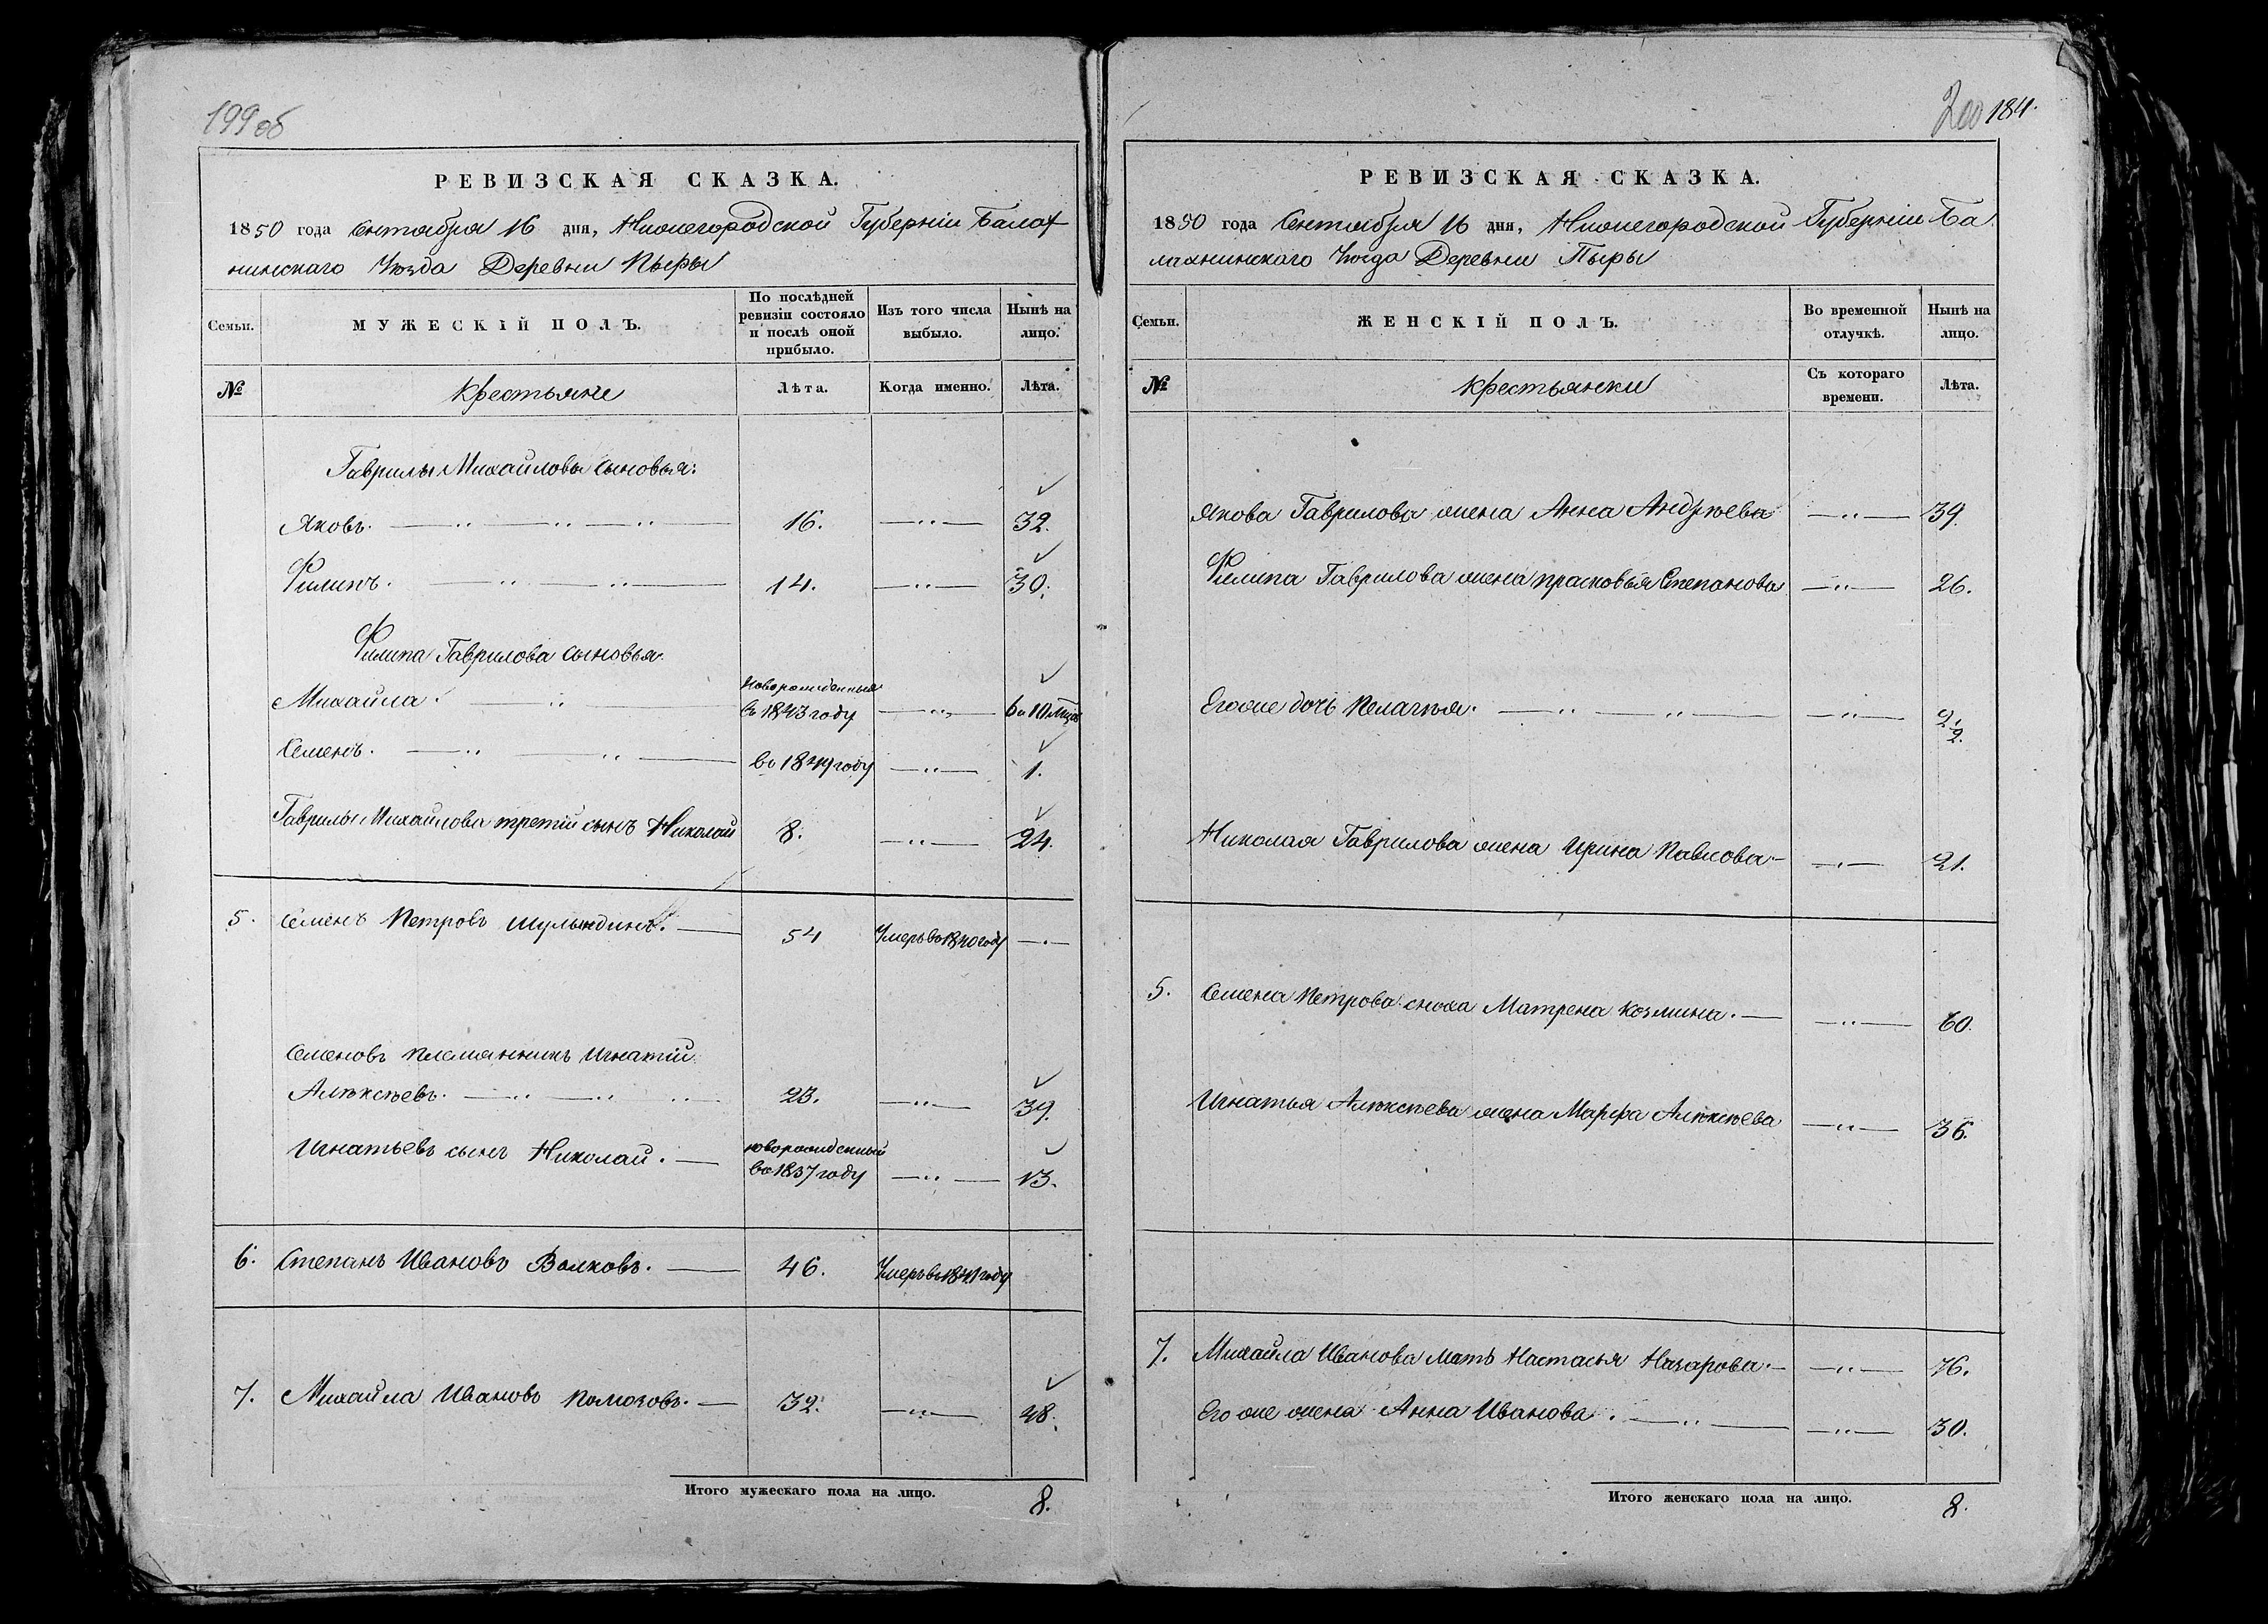 199 об
РЕВИЗСКАЯ СКАЗКА.
1850 года Сентября 16 дня, Нижегородской Губерніи Балах
нинскаго Уѣзда Деревни Пыры
Семьи.
МУЖЕСКІЙ ПОЛЪ.
По послѣдней ревизіи состояло и послѣ оной прибыло.
Изъ того числа выбыло.
Нынѣ на лицо.
№ Крестьяне Лѣта. Когда именно. Лѣта.
Гаврилы Михайлова сыновья:
Яковъ. 16. 32.
Филипъ. 14. 30.
Филипа Гаврилова сыновья.
Михайла. Новорожденный
въ 1843 году 6 и 10 мцов
Семенъ. въ 1849 году 1.
Гаврилы Михайлова третій сынъ Николай 8. 24.
5. Семенъ Петровъ Шулындинъ. 54 Умеръ въ 1840 году
Семеновъ племянникъ Игнатій
Алѣксѣевъ. 23. 39.
Игнатьевъ сынъ Николай. новорожденный
въ 1837 году 13.
6. Степанъ Ивановъ Волковъ. 46. Умеръ въ 1841 году
7. Михайла Ивановъ Помозовъ. 32. 48.
Итого мужескаго пола на лицо. 8.
200 184.
РЕВИЗСКАЯ СКАЗКА.
1850 года Сентября 16 дня, Нижегородской Губерніи Ба
лахнинскаго Уѣзда Деревни Пыры
Семьи.
ЖЕНСКІЙ ПОЛЪ.
Во временной отлучкѣ.
Нынѣ на лицо.
№ Крестьянки Съ котораго времени. Лѣта.
Якова Гаврилова жена Анна Андрѣева 39.
Филипа Гаврилова жена Прасковья Степанова 26.
Его же дочь Пелагѣя. 2 1/2.
Николая Гаврилова жена Ирина Павлова. 21.
5. Семена Петрова сноха Матрена Козмина. 60.
Игнатья Алѣксѣева жена Марфа Алѣксѣева 36.
7. Михайла Иванова мать Настасья Назарова. 76.
Его же жена Анна Иванова. 30.
Итого женскаго пола на лицо. 8.